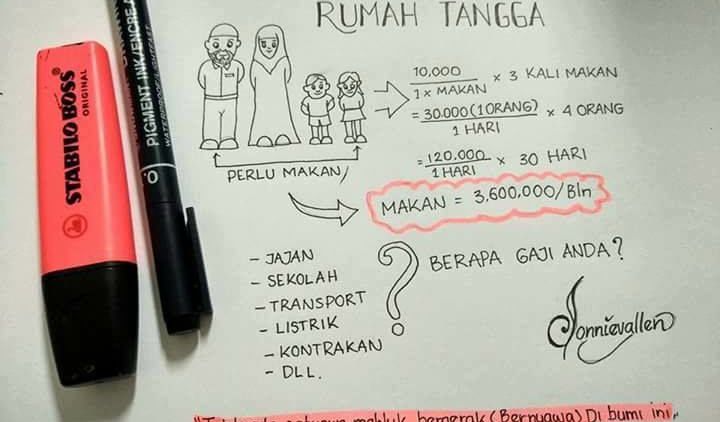 RUMAH TANGGA
10,000 / 1 x MAKAN x 3 KALI MAKAN
= 30.000 (1 ORANG) / 1 HARI x 4 ORANG
= 120.000 / 1 HARI x 30 HARI
PERLU MAKAN
MAKAN = 3,600,000/Bln
- JAJAN
- SEKOLAH
- TRANSPORT
- LISTRIK
- KONTRAKAN
- DLL.
?
BERAPA GAJI ANDA?
Jonnievallen
STABILO BOSS
ORIGINAL
PIGMENT INK/ENCRE
mahluk bergerak (Bernyawa) Di bumi ini,,